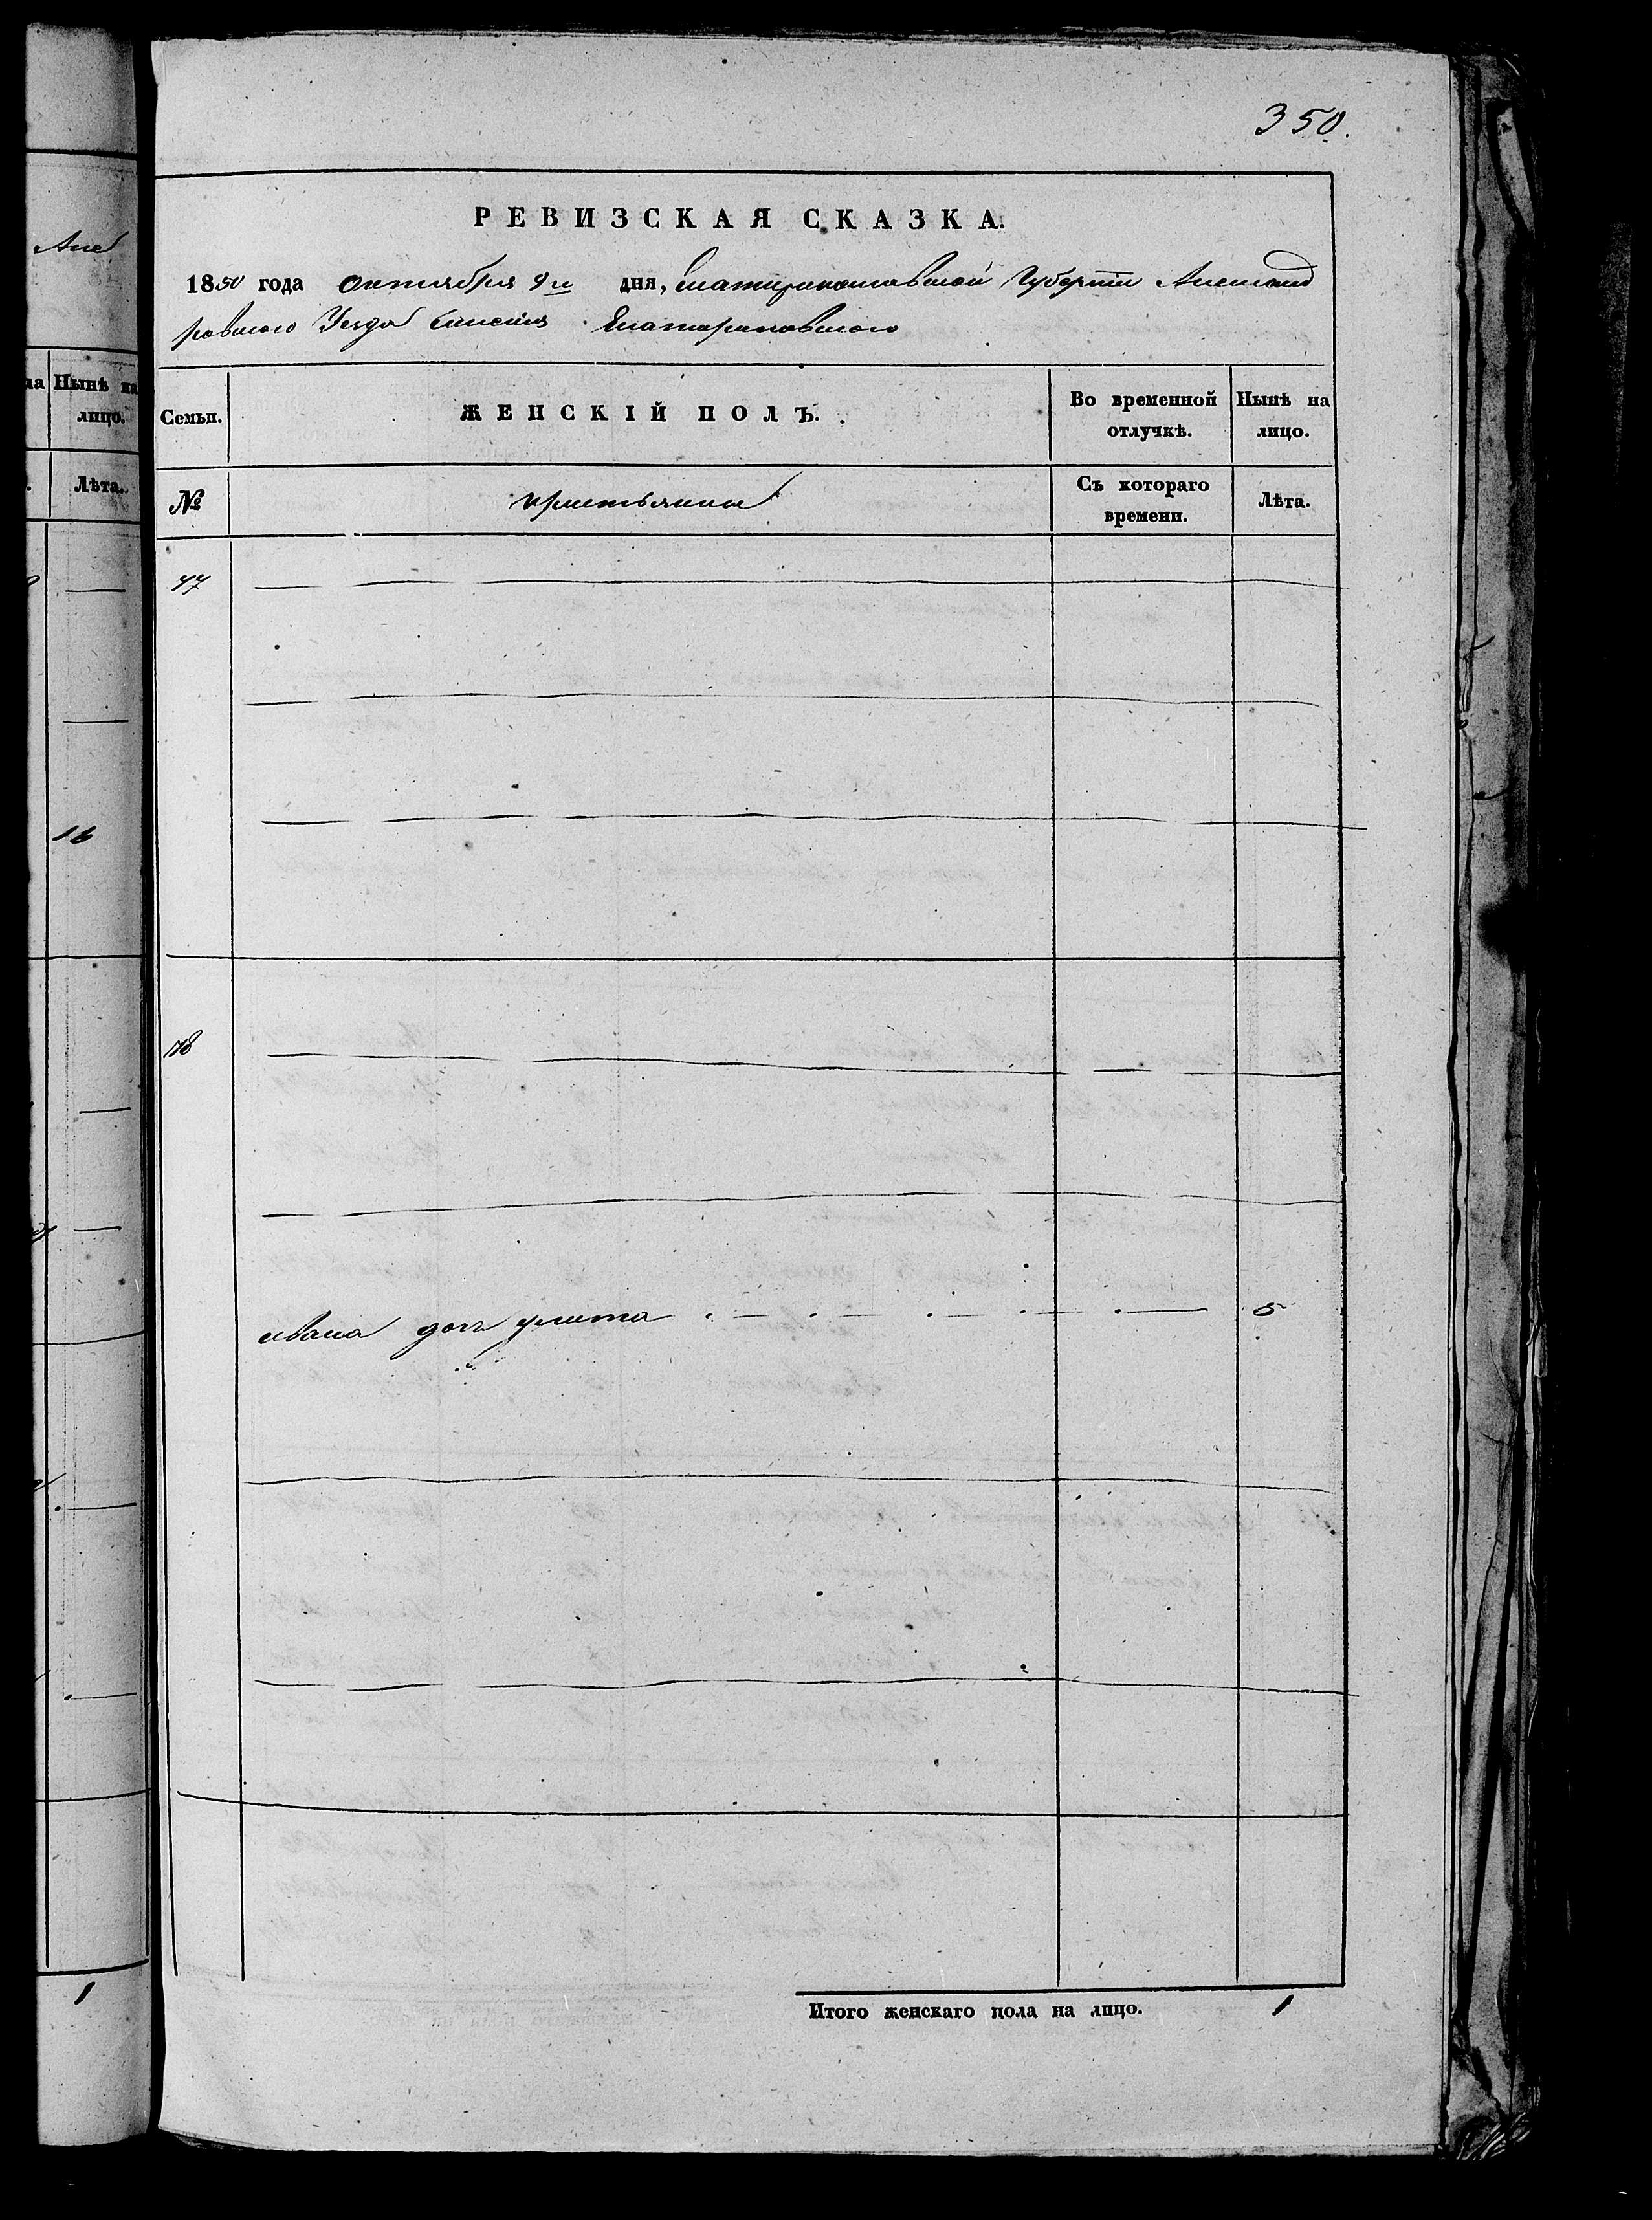 350.
РЕВИЗСКАЯ СКАЗКА.
1850 года октября 9го дня, Екатеринославской Губернии Александ
ровского Уезда Селения Екатериновского
Семьи. ЖЕНСКІЙ ПОЛЪ. Во временной отлучкѣ. Нынѣ на лицо.
№ крестьянки Съ котораго времени. Лѣта.
77
78
ивана дочь улита 5
Итого женскаго пола на лицо. 1
Нынѣ на
лицо.
Лѣта.
16
1